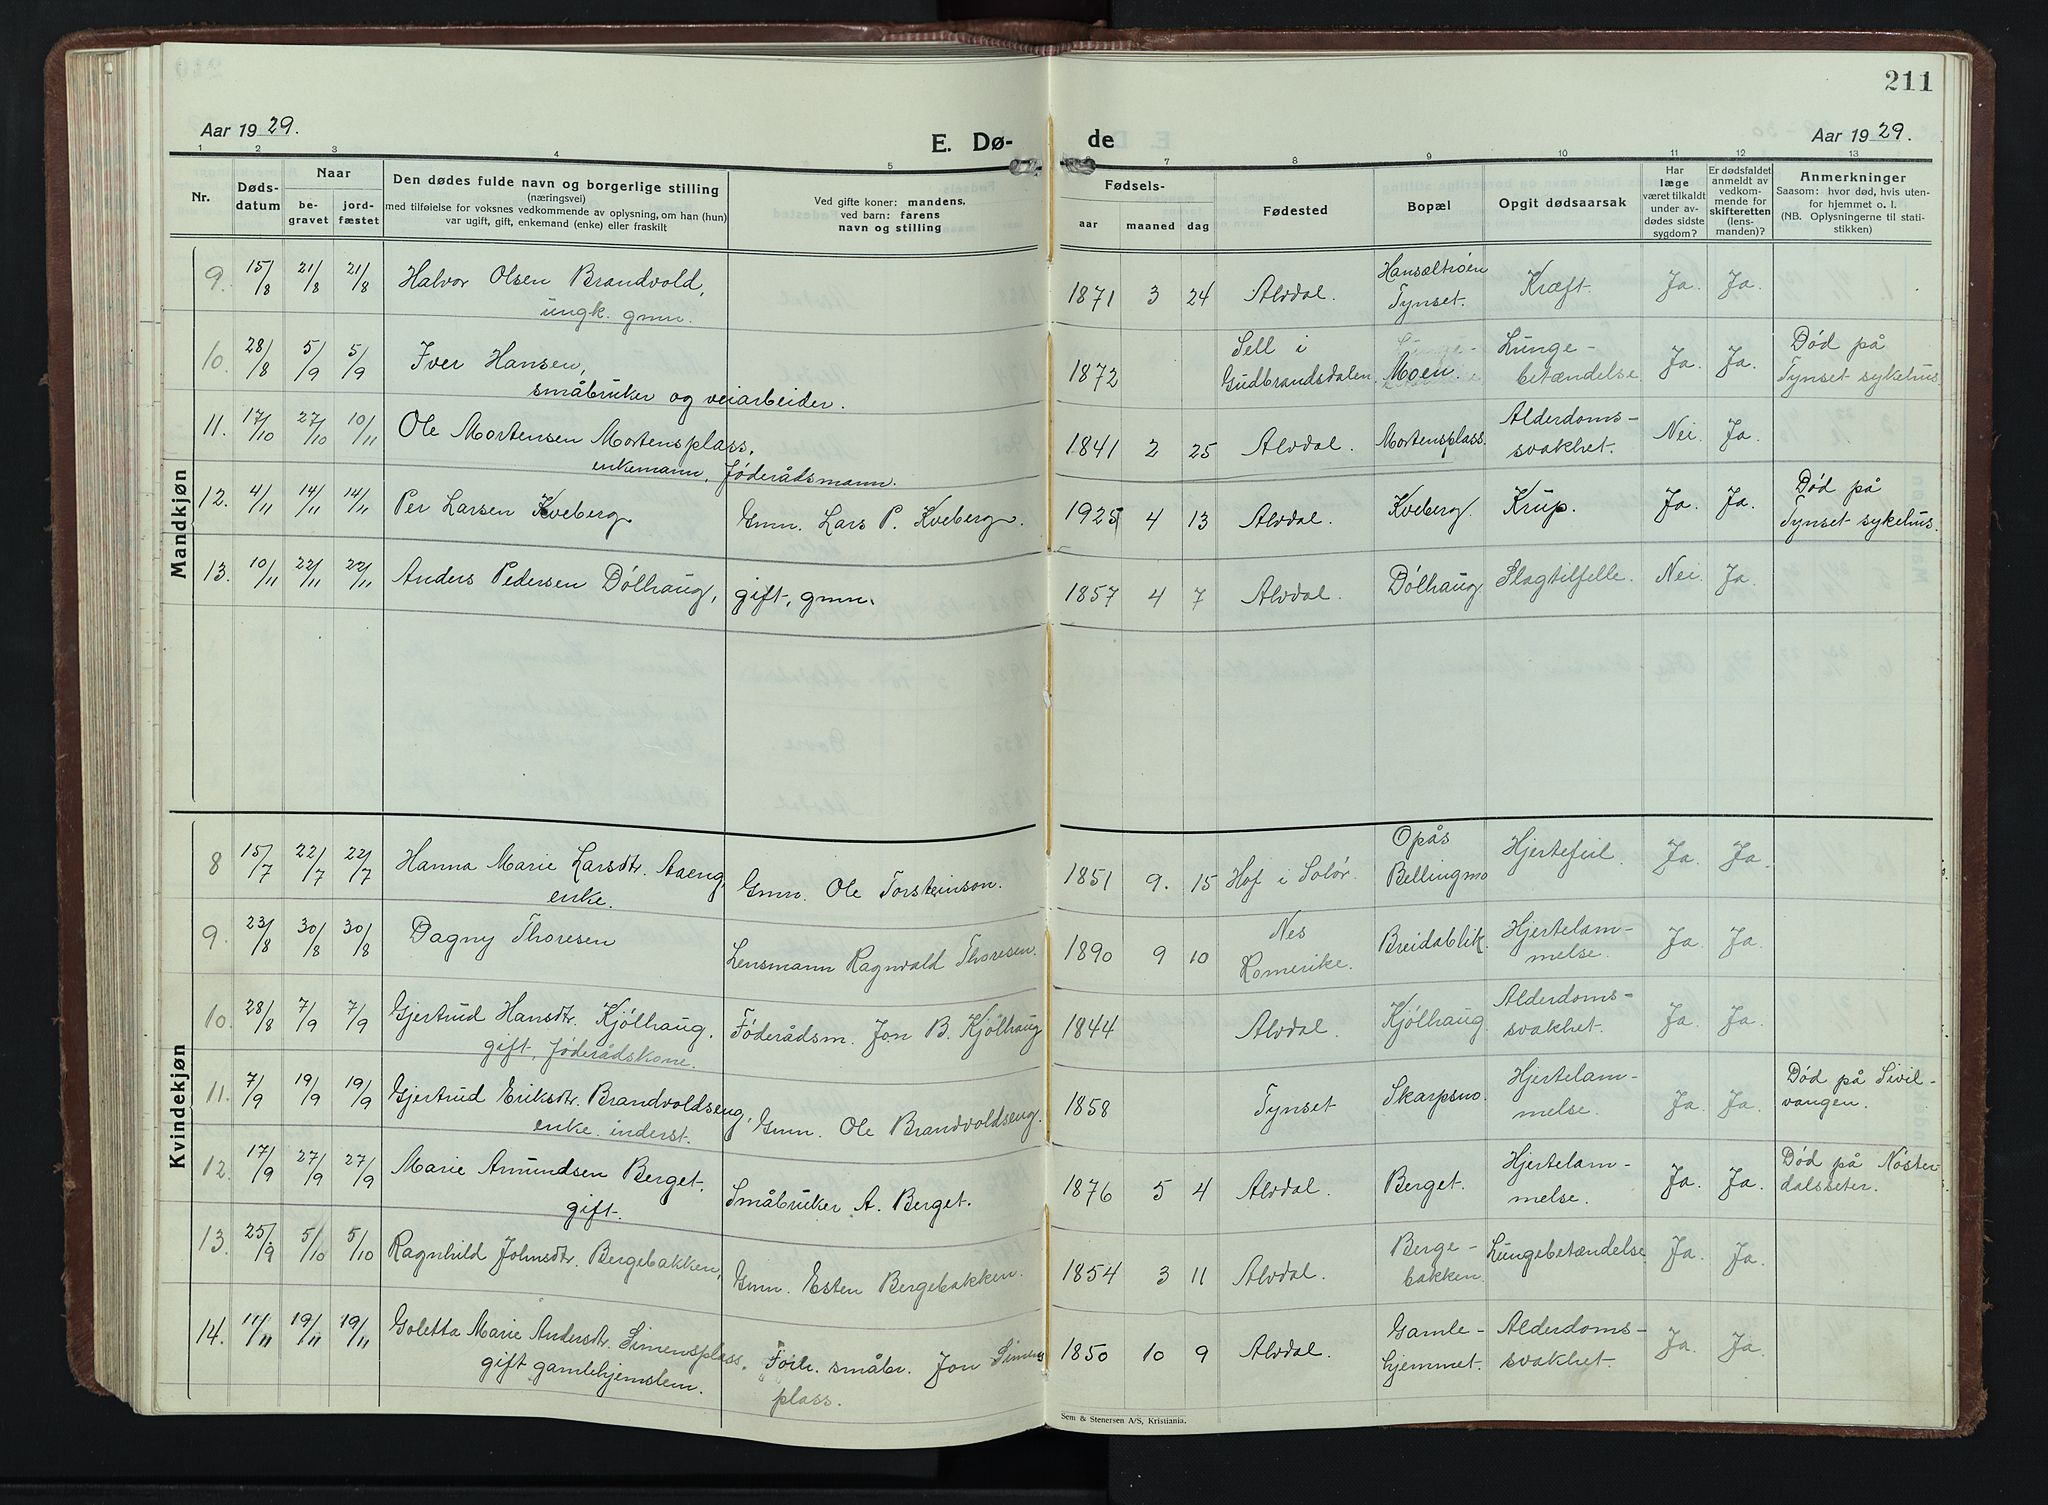 211
Aar 1929.
E. Dø-
de
Aar 1929.
1 2 3 4 5 7 8 9 10 11 12 13
Nr.
Døds-
datum
Naar
be-
gravet
jord-
fæstet
Den dødes fulde navn og borgerlige stilling
(næringsvei)
med tilføielse for voksnes vedkommende av oplysning, om han (hun)
var ugift, gift, enkemand (enke) eller fraskilt
Ved gifte koner: mandens,
ved barn: farens
navn og stilling
Fødsels-
aar
maaned
dag
Fødested
Bopæl
Opgit dødsaarsak
Har
læge
været tilkaldt
under av-
dødes sidste
sygdom?
Er dødsfaldet
anmeldt av
vedkom-
mende for
skifteretten
(lens-
manden)?
Anmerkninger
Saasom: hvor død, hvis uten-
for hjemmet o. l.
(NB. Oplysningerne til stati-
stikken)
Mandkjøn
9. 15/8 21/8 21/8 Halvor Olsen Brandvold,
ungk. gmn.
1871 3 24 Alvdal. Hansæltrøen
Tynset. Kræft. Ja. Ja.
10. 28/8 5/9 5/9 Iver Hansen,
småbruker og veiarbeider.
1872 Sell i
Gudbrandsdalen. Moen. Lunge-
betændelse. Ja. Ja. Død på
Tynset sykehus.
11. 17/10 27/10 10/11 Ole Mortensen Mortensplass,
enkemann, føderådsmann.
1841 2 25 Alvdal. Mortensplass. Alderdoms-
svakhet. Nei. Ja.
12. 4/11 14/11 14/11 Per Larsen Kveberg Gmn. Lars P. Kveberg.
1925 4 13 Alvdal. Kveberg. Krup. Ja. Ja. Død på
Tynset sykehus.
13. 10/11 22/11 22/11 Anders Pedersen Dölhaug, gift, gmn.
1857 4 7 Alvdal. Dölhaug. Slagtilfelle. Nei. Ja.
Kvindekjøn
8 15/7 22/7 22/7 Hanna Marie Larsdtr. Aaeng,
enke. Gmn. Ole Torsteinson.
1851 9. 15 Hof i Solör. Opås
Bellingmo Hjertefeil. Ja. Ja.
9. 23/8 30/8 30/8 Dagny Thoresen Lensmann Ragnvald Thoresen.
1890 9 10 Nes
Romerike. Breidablik. Hjertelam-
melse. Ja. Ja.
10. 28/8 7/9 7/9 Gjertrud Hansdtr. Kjölhaug,
gift, føderådskone. Föderådsm. Jon B. Kjölhaug
1844 Alvdal. Kjölhaug. Alderdoms-
svakhet. Ja. Ja.
11. 7/9 19/9 19/9 Gjertrud Eriksdtr. Brandvoldseng,
enke. inderst. Gmn. Ole Brandvoldseng.
1858 Tynset Skarpsno. Hjertelam-
melse. Ja. Ja. Død på Sivil-
vangen.
12. 17/9 27/9 27/9 Marie Amundsen Berget.
gift. Småbruker A. Berget.
1876 5 4 Alvdal. Berget. Hjertelam-
melse. Ja. Ja. Død på Noster-
dalsseter.
13. 25/9 5/10 5/10 Ragnhild Johnsdtr. Bergebakken, Gmn. Esten Bergebakken.
1854 3 11 Alvdal. Berge-
bakken. Lungebetændelse. Ja. Ja.
14. 11/11 19/11 19/11 Goletta Marie Andersdtr. Simensplass.
gift gamlehjemslem. Forh. småbr. Jon Simens
plass.
1850 10 9 Alvdal. Gamle-
hjemmet. Alderdoms-
svakhet. Ja. Ja.
Sem & Stenersen A/S, Kristiania.